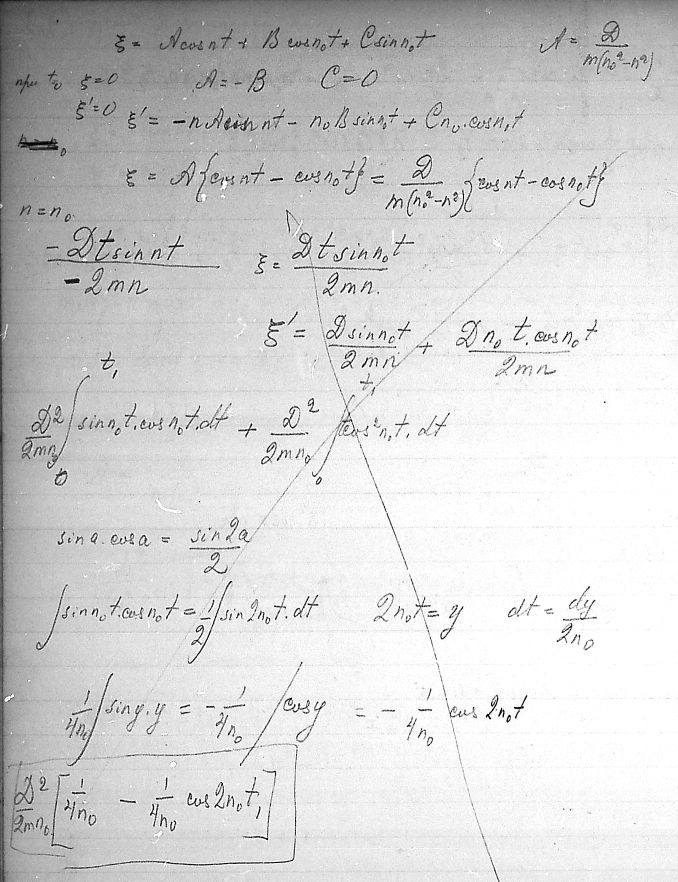 ξ = A cos nt + B cos n₀t + C sin n₀t A = D/m(n₀²-n²)
при t₀ ξ=0 A=-B C=0
ξ'=0 ξ' = -nA sin nt - n₀B sin n₀t + Cn₀.cos n₀t
ξ = A{cos nt - cos n₀t} = D/m(n₀²-n²) {cos nt - cos n₀t}
n=n₀
-Dt sin nt/-2mn ξ = Dt sin n₀t/2mn.
ξ' = D sin n₀t/2mn + Dn₀ t.cos n₀t/2mn
D²/2mn₀ ∫₀^t₁ sin n₀t.cos n₀t.dt + D²/2mn₀ ∫₀^t₁ t cos² n₀t.dt
sin a.cos a = sin 2a/2
∫sin n₀t.cos n₀t = 1/2 ∫sin 2n₀t.dt 2n₀t=y dt = dy/2n₀
1/4n₀ ∫sin y.y = -1/4n₀ ∫cos y = -1/4n₀ cos 2n₀t
D²/2mn₀ [1/4n₀ - 1/4n₀ cos 2n₀t₁]